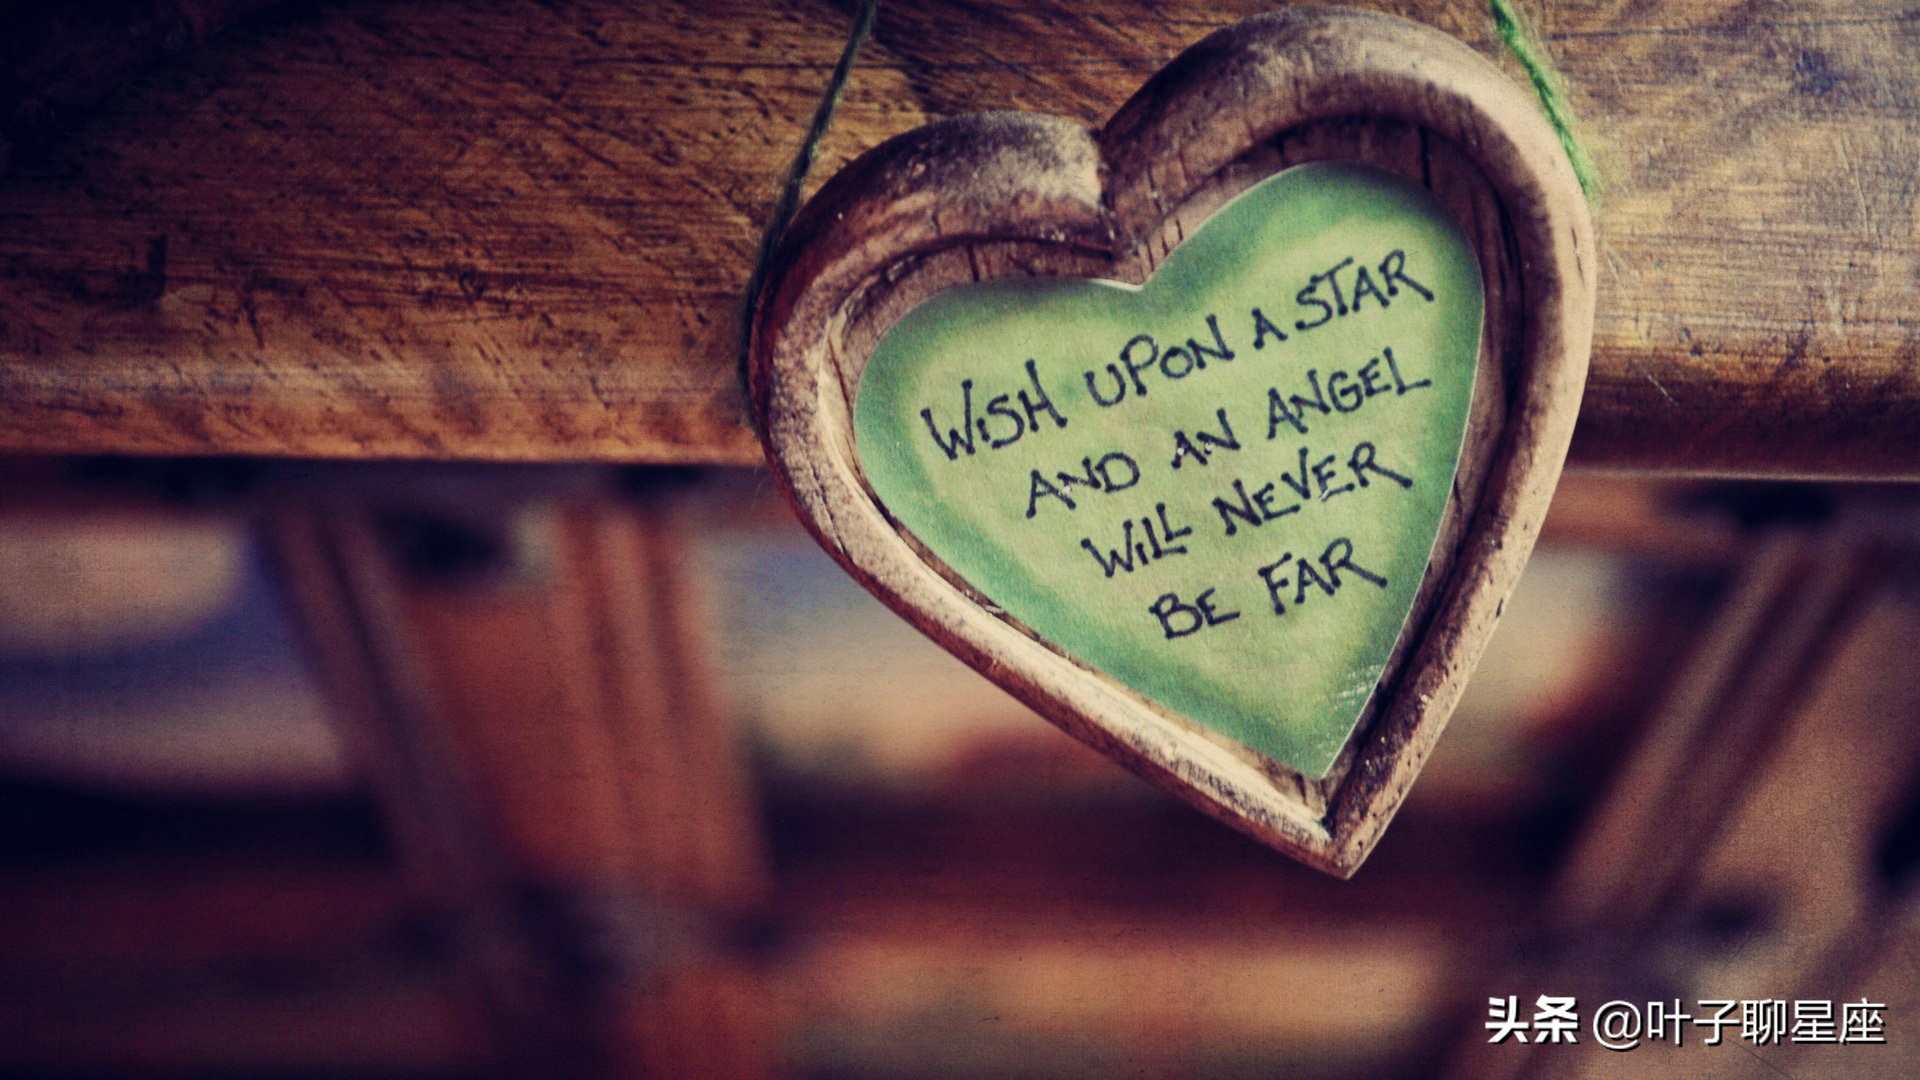 WISH UPON A STAR
AND AN ANGEL
WILL NEVER
BE FAR
头条 @叶子聊星座